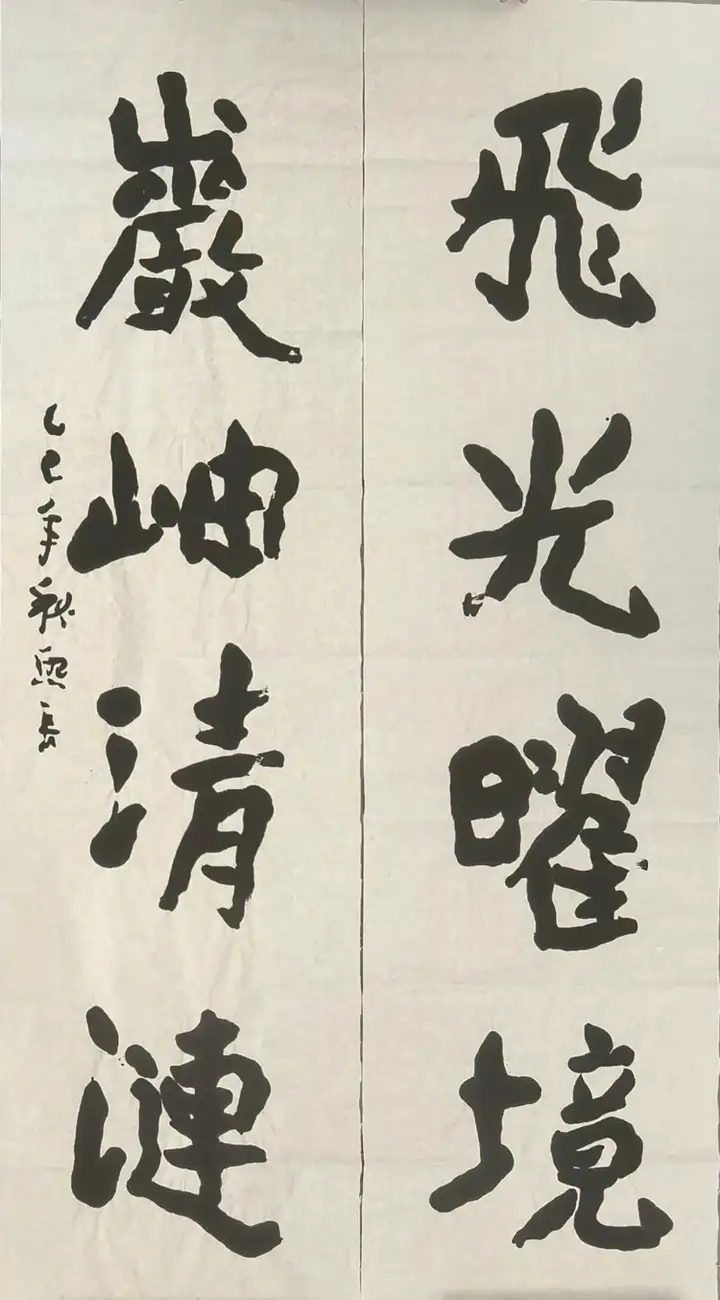 飛光曜境
巖岫清漣
乙巳年秋熙岳